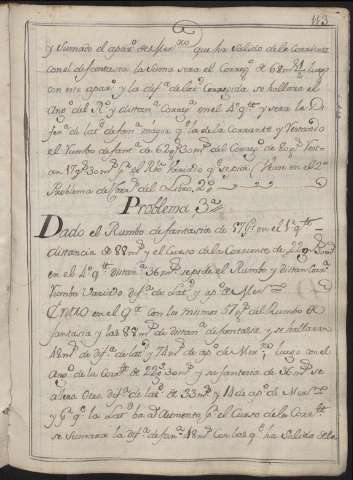 113
y Sumado el apar.º de Mer.º que ha Salido de la Corriente
con el de fantasia la Suma sera el Correg.º de 68 m
con este apar.º y la dif.ª de lat.ª Corregida se hallara el
Ang.º del R.º y distan.ª Correg.ª en el 4.º q.te y sera la D
fer.ª de lat.ª de fan.ª mayor q.e la de la Corriente y Restando
el Rumbo de fant.ª de 62 g.s 30 m.s del Correg.º de 80 g.s res-
tan 17 g.s 30 m.s p.r el Rbo. Varidio q.e se pide / Vean en el 2.º
Problema de Corr.s del Libro 2.º
Problema 3.º
Dado el Rumbo de fantasia de 57 g.s en el 1.º q.te
distancia de 88 m.s y el Curso de la Corriente de 22 g.s 30 m.s
en el 4.º q.te distan.ª 36 m.s se pide el Rumbo y distan.ª Corr.ª
Rumbo Varidio dif.ª de Lat.ª y ap.º de Mer.º
Entro en el q.te con los mismos 57 g.s del Rumbo de
fantasia y las 88 m.s de distan.ª de fantasia y se hallaran
48 m.s de dif.ª de lat.ª y 74 m.s de ap.º de Mer.º; luego con el
Ang.º de la Corr.te de 22 g.s 30 m.s y su fantasia de 36 m.s se
allara otra dif.ª de lat.ª de 33 m.s y 14 de ap.º de Mer.º
y p.r q.e la Lat.ª ba al Aumento p.r el Curso de la Corr.te
se Sumara la dif.ª de fan.ª 48 m.s con las q.e ha Salido de la